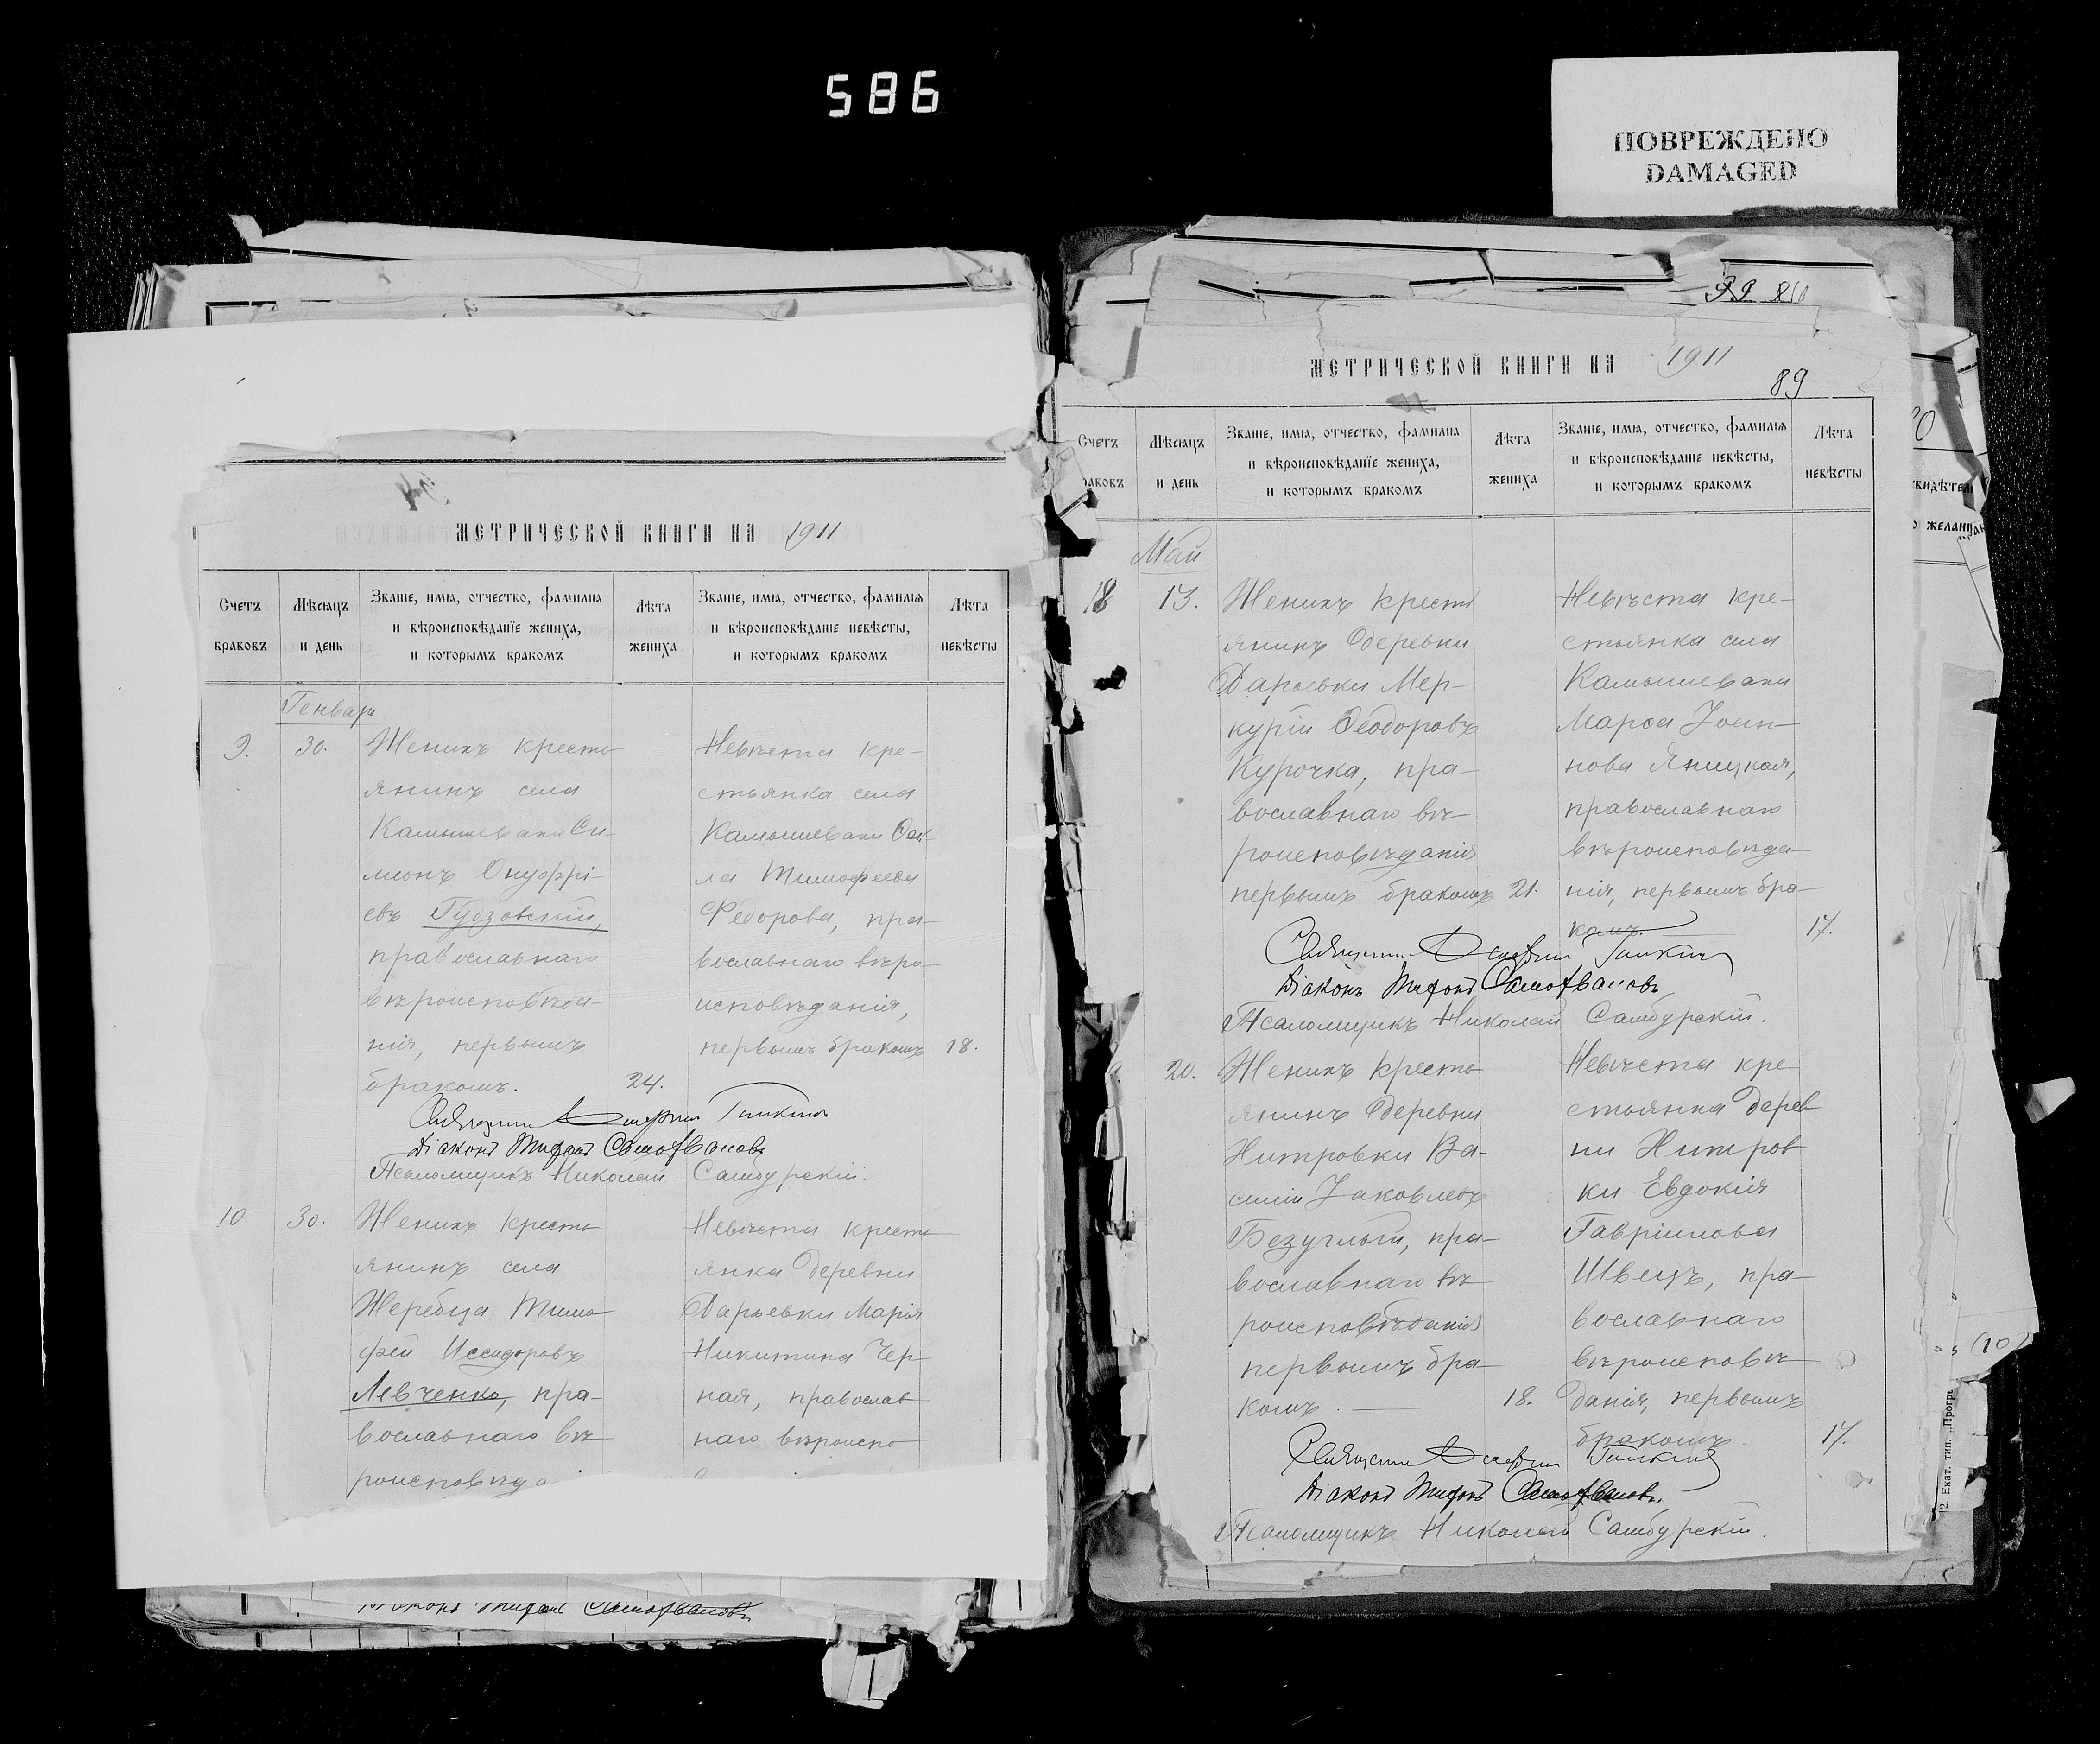 586
ПОВРЕЖДЕНО
DAMAGED
МЕТРИЧЕСКОЙ КНИГИ НА 1911
Счетъ браковъ
Мѣсяцъ и день
Званіе, имя, отчество, фамилія и вѣроисповѣданіе жениха, и которымъ бракомъ
Лѣта жениха
Званіе, имя, отчество, фамилія и вѣроисповѣданіе невѣсты, и которымъ бракомъ
Лѣта невѣсты
Генварь
9.
30.
Женихъ кресть-
янинъ села
Камышевахи Си-
меонъ Онуфрі-
евъ Гудзовскій,
православнаго
вѣроисповѣда-
нія, первымъ
бракомъ.
24.
Невѣста кре-
стьянка села
Камышевахи Фек-
ла Тимофеева
Федорова, пра-
вославнаго вѣро-
исповѣданія,
первымъ бракомъ
18.
Діаконъ Тифонъ Самофаловъ
Псаломщикъ Николай Самбурскій.
10
30.
Женихъ кресть-
янинъ села
Жеребца Тимо-
фей Иссидоровъ
Левченко, пра-
вославнаго вѣ-
роисповѣда
Невѣста кресть-
янка деревни
Дарьевки Марія
Никитина Чер-
ная, православ-
наго вѣроиспо-
99 80
МЕТРИЧЕСКОЙ КНИГИ НА 1911
89
Счетъ
раковъ
Мѣсяцъ и день
Званіе, имя, отчество, фамилія и вѣроисповѣданіе жениха, и которымъ бракомъ
Лѣта жениха
Званіе, имя, отчество, фамилія и вѣроисповѣданіе невѣсты, и которымъ бракомъ
Лѣта невѣсты
Май
18
13.
Женихъ кресть
янинъ деревни
Дарьевки Мер-
курій Феодоровъ
Курочка, пра-
вославнаго вѣ-
роисповѣданія
первымъ бракомъ
21.
Невѣста кре-
стьянка села
Камышевахи
Марѳа Іоан-
нова Яницкая,
православнаго
вѣроисповѣда-
нія, первымъ бра-
комъ.
17.
Діаконъ Тифонъ Самофаловъ
Псаломщикъ Николай Самбурскій.
20.
Женихъ кресть-
янинъ деревни
Хитровки Ва-
силій Іаковлевъ
Безуглый, пра-
вославнаго вѣ-
роисповѣданія
первымъ бра-
комъ.
18.
Невѣста кре-
стьянка дерев
ни Хитров-
ки Евдокія
Гавріилова
Швецъ, пра-
вославнаго
вѣроисповѣ-
данія, первымъ
бракомъ.
17.
Діаконъ Тифонъ Самофаловъ.
Псаломщикъ Николай Самбурскій.